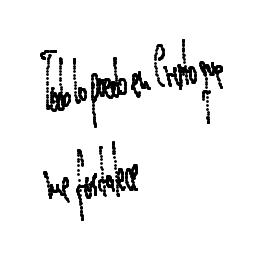 Todo lo puedo en Cristo que
me fortalece